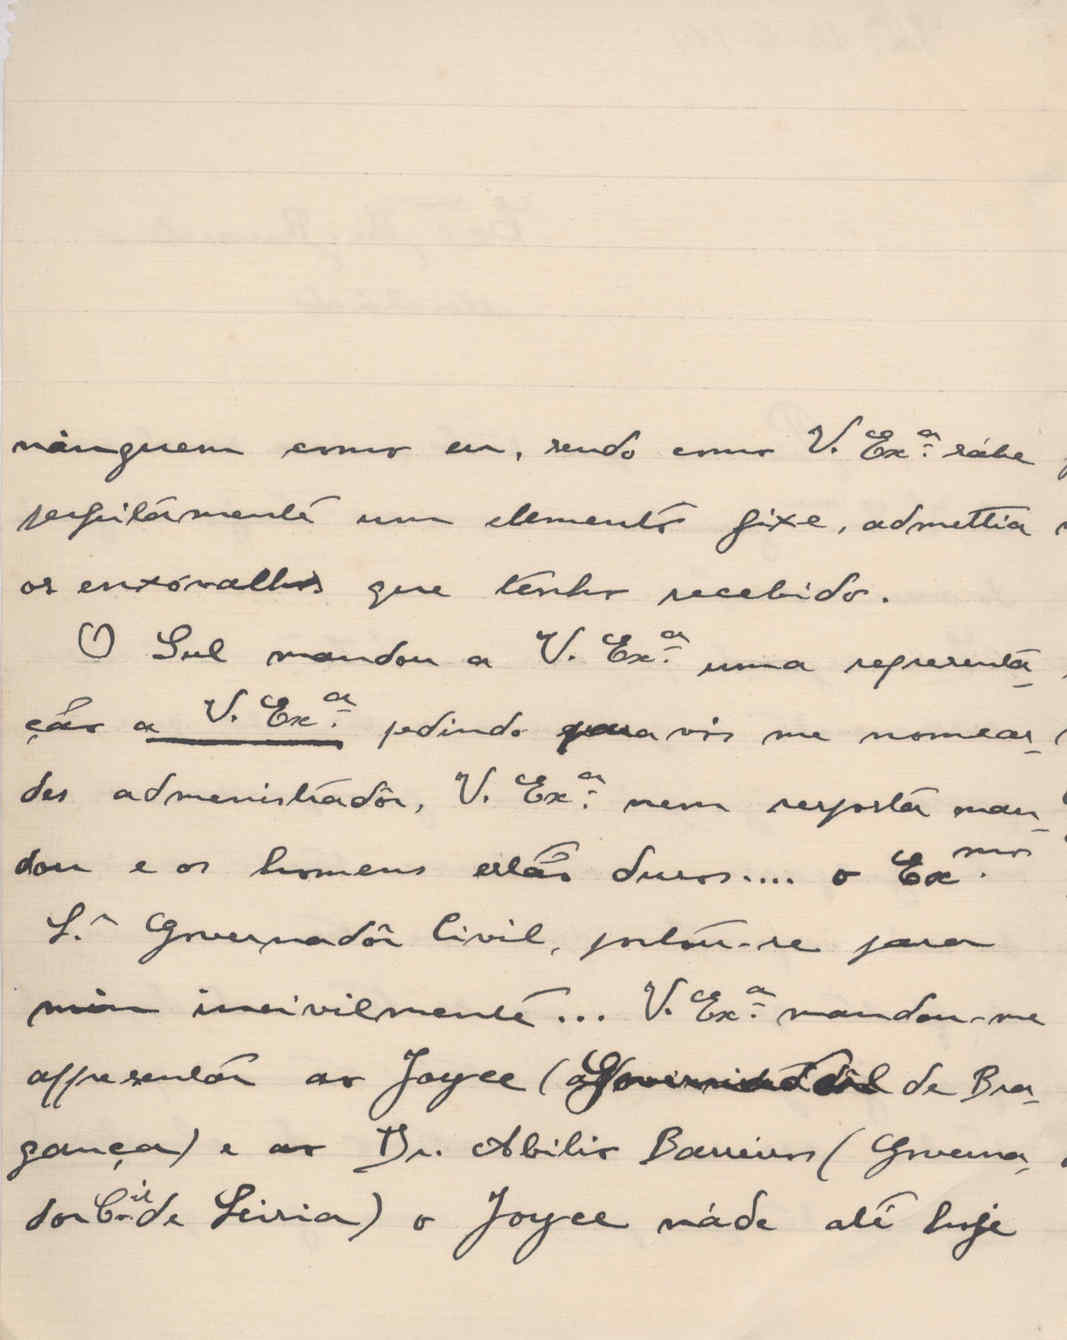 ninguem como eu, sendo como V. Ex.ª sábe
perfeitâmentê um elementô fixe, admettia
os enxóvalhos que tenho recebido.
O Sul mandou a V. Ex.ª uma representa-
ção a V. Ex.ª pedindo para vós me nomear-
des admenistradôr, V. Ex.ª nem respostâ man-
dou e os homens estão duros.... o Ex.mo
S.r Governadôr Civil, portou-se para
mim incivilmentê... V. Ex.ª mandou-me
appresentár ao Joyce ( de Bra-
gança) e ao Dr. Abilio Barreiros (Governa-
dor C.il de Leiria) o Joyce náde até hoje